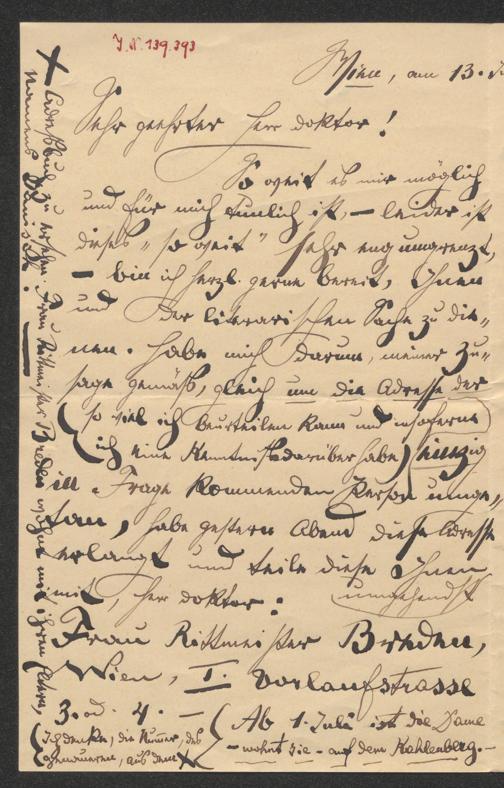 J.N. 139.393
Wien, am 13. J
Sehr geehrter Herr Doktor!
So weit es mir möglich
und für mich tunlich ist, — leider ist
dieses „so weit" sehr eng umgrenzt,
— bin ich herzl. gerne bereit, Ihnen
und der literarischen Sache zu die-
nen. Habe mich darum, meiner Zu-
sage gemäß, gleich um die Adresse der
(so viel ich beurteilen kann und insoferne
ich eine Kenntniß darüber habe) einzig
in Frage kommenden Person umge-
tan, habe gestern Abend diese Adresse
erlangt und teile diese Ihnen
umgehendst
mit, Herr Doktor:
Frau Rittmeister Breden,
Wien, I. Vorlaufstrasse
3. od. 4. — (Ab 1. Juli ist die Dame
— wohnt sie — auf dem Kahlenberg. —
(Ich denke, die Nummer, des
aus dem X
X Adreßbuch zu ersehen. Frau Rittmeister Breden wohnt mit ihren Eltern,
Namens